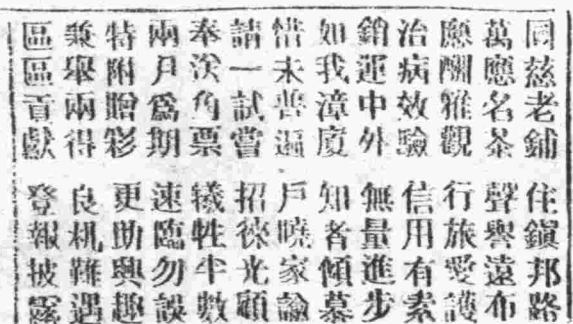 同慈老鋪 住鎮邦路
萬應名茶 聲譽遠布
應酬雅觀 行旅愛護
治病效驗 信用有素
銷運中外 無量進步
如我漳廈 知者傾慕
惜未普遍 戶曉家諭
請一試嘗 招徠光顧
奉送角票 犧牲半數
兩月爲期 速臨勿誤
特附贈彩 更助興趣
兼舉兩得 良机難遇
區區貢獻 登報披露